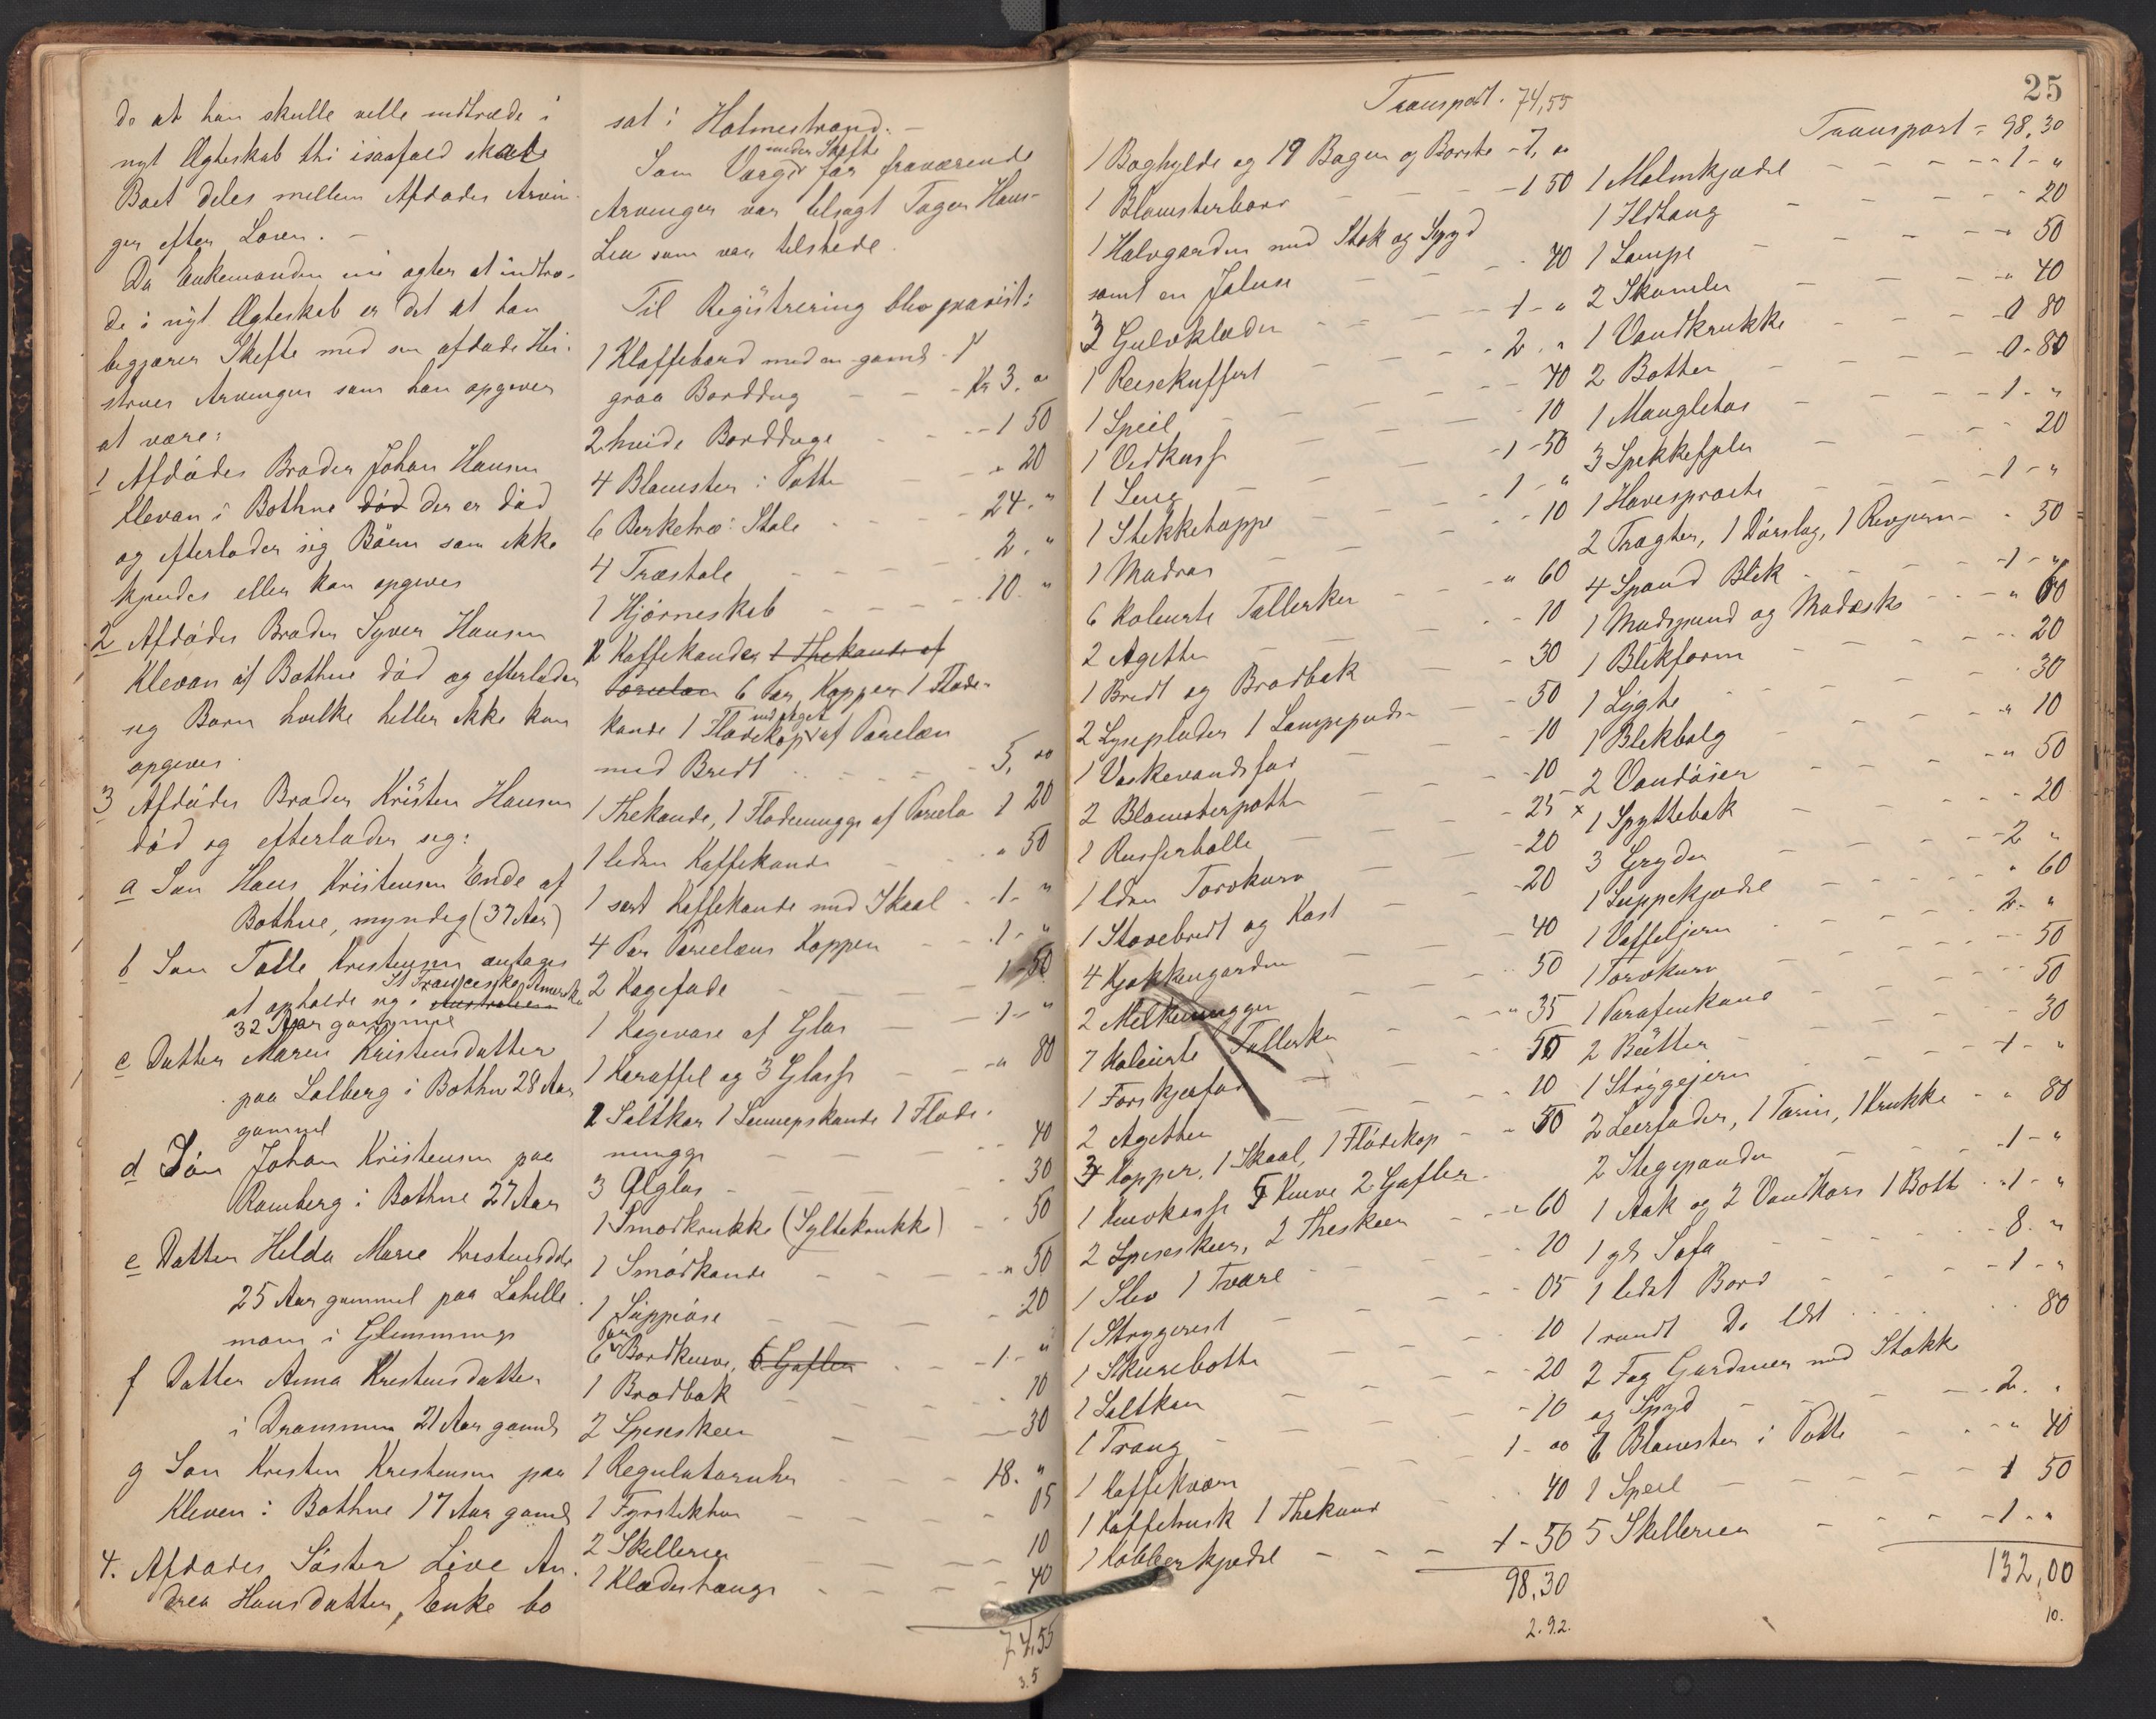 de at han skulle ville indtræde i
nyt Ægteskab thi isaafald skal
Boet deles mellem Afdødes Arvin-
ger efter Loven. –
Da Enkemanden nu agter at indtræ-
de i nyt Ægteskab er det at han
begjærer Skifte med sin afdøde Hu-
struer Arvinger som han opgiver
at være:
1 Afdødes Broder Johan Hansen
Klevan i Bothne død der er død
og efterlader sig Børn som ikke
kjendes eller kan opgives
2 Afdødes Broder Syver Hansen
Klevan af Bothne død og efterlader
sig Børn hvilke heller ikke kan
opgives.
3 Afdødes Broder Kristen Hansen
død og efterlader sig:
a Søn Hans Kristensen Ende af
Bothne, myndig (37 Aar)
b Søn Tolle Kristensen antages
at opholde sig i Australien St Francisko Amerika
32 Aar gammel
c Datter Maren Kristensdatter
paa Solberg i Bothne 28 Aar
gammel
d Søn Johan Kristensen paa
Ramberg i Bothne 27 Aar
e Datter Helda Marie Kristensdtr
25 Aar gammel paa Labelle
moen i Glemminge
f Datter Anna Kristensdatter
i Drammen 21 Aar gaml
g Søn Kristen Kristensen paa
Kleven i Bothne 17 Aar gaml
4. Afdødes Søster Live An-
drea Hansdatter, Enke bo
sat i Holmestrand. –
Som Værge under Skifte for fraværende
Arvinger var tilsagt Tager Hans-
Lea som var tilstede.
Til Registrering blev pravist:
1 Klaffebord med en gaml
graa Borddug – – Kr 3. "
2 hvide Bordduge – – 1 50
4 Blomster i Potte – " 20
6 Berketræ: Stole – 24. "
4 Træstole – – 2. "
1 Hjørneskab – – 10. "
2 Kaffekander 1 Thekande af
Porcelæn 6 Par Kopper 1 Fløde-
kande 1 Flødekop af Porcelæn
med Bredt – – 5, 00
1 Thekande, 1 Flødemugge af Porcelæ 1 20
1 liden Kaffekande – " 50
1 sort Kaffekande med Skaal – 1 – "
4 Par Porcelæns Kopper – 1 – "
2 Kagefade – – 1 – 50
1 Kagevase af Glas – – 1 – "
1 Karaffel og 3 Glass – – " 80
2 Saltkar 1 Sennepskande 1 Fløde-
mugge – – 40
3 Ølglas – – 30
1 Smørkrukke (Syltekrukke) – 50
1 Smørkande – – " 50
1 Suppeøse – – 20
6 Par Bordknive, 6 Gafler – – 1 – "
1 Brødbak – – 10
2 Spiseskeer – – 30
1 Regulatoruhr – – 18. "
1 Fyrstikhus – – 05
2 Skillerier – – 10
1 Klædeshænge – – 40
74,55
3.5
25
Transport. 74,55
1 Boghylde og 19 Bøger og Børste – 7, "
1 Blomsterbord – – 1 50
1 Halvgardin med Stok og Spyd
samt en Jalusi – – 40
3 Gulvklæder – – 1 – "
1 Reisekuffert – – 2. "
1 Speil – – 40
1 Vedkasse – – 10
1 Seng – – 1 – 50
1 Stikketæppe – – 1 – "
1 Madras – – 10
6 kolerite Tallerker – – " 60
2 Agetter – – 10
1 Bredt og Brødbak – – 30
2 Lyseplader 1 Lampepuds – – 50
1 Vaskevandsfad – – 10
2 Blomsterpotte – – 10
1 Russerbolle – – 25
1 liden Torvkurv – – 20
1 Stovebredt og Kost – – 20
4 Kjøkkengardin – – 40
2 Melkemugger – – 50
7 kolerite Tallerker – – " 35
1 Forskjærfad – – 50
2 Agetter – – 10
3 Kopper, 1 Skaal, 1 Flødekop – – 50
1 Knivkasse 5 Knive 2 Gafler
2 Spiseskeer, 2 Theskeer – – 60
1 Slev 1 Tvare – – 10
1 Strygerist – – 05
1 Skurebotte – – 10
1 Saltkar – – 20
1 Traug – – 10
1 Kaffekværn – – 1 – 00
1 Kaffehusk 1 Thekande – 40
1 Kobberkjedel – – 1 – 50
98,30
2.92.
Transport = 98,30
1 Malmkjedel – – 1 – "
1 Ildtang – – 20
1 Lampe – – 50
2 Skamler – – " 40
1 Vandkrukke – – 0 80
2 Bøtter – – 0 – 80
1 Mangletøi – – 1 – "
3 Spekkefjeler – – 20
1 Havesprøite – – 1 – "
2 Tragter, 1 Dørslag, 1 Revjern – – 50
4 Spand Blik – – 1 – "
1 Madspand og Madæske – – " 60
1 Blikform – – 20
1 Lygte – – 30
1 Blikbalg – – " 10
2 Vandøser – – " 50
1 Spyttebak – – 20
3 Gryder – – 2 "
1 Suppekjedel – – " 60
1 Vaffeljern – – 2. "
1 Torvkurv – – 50
1 Parafinkande – – 50
2 Bøtter – – 30
1 Strygejern – – 1 – "
2 Leerfader, 1 Tarin, 1 Krukke – " 80
2 Stegepander – – 1 – "
1 Aak og 2 Vandkars 1 Bøtt – 1 – "
1 gl. Sofa – – 8. "
1 lidet Bord – – 1 – "
1 rundt Do lidt – – 80
2 Fag Gardiner med Stokke
og Spyd – – 2. "
6 Blomster i Potte – – " 40
1 Speil – – 1 50
5 Skillerier – – 1 – "
132,00
10.